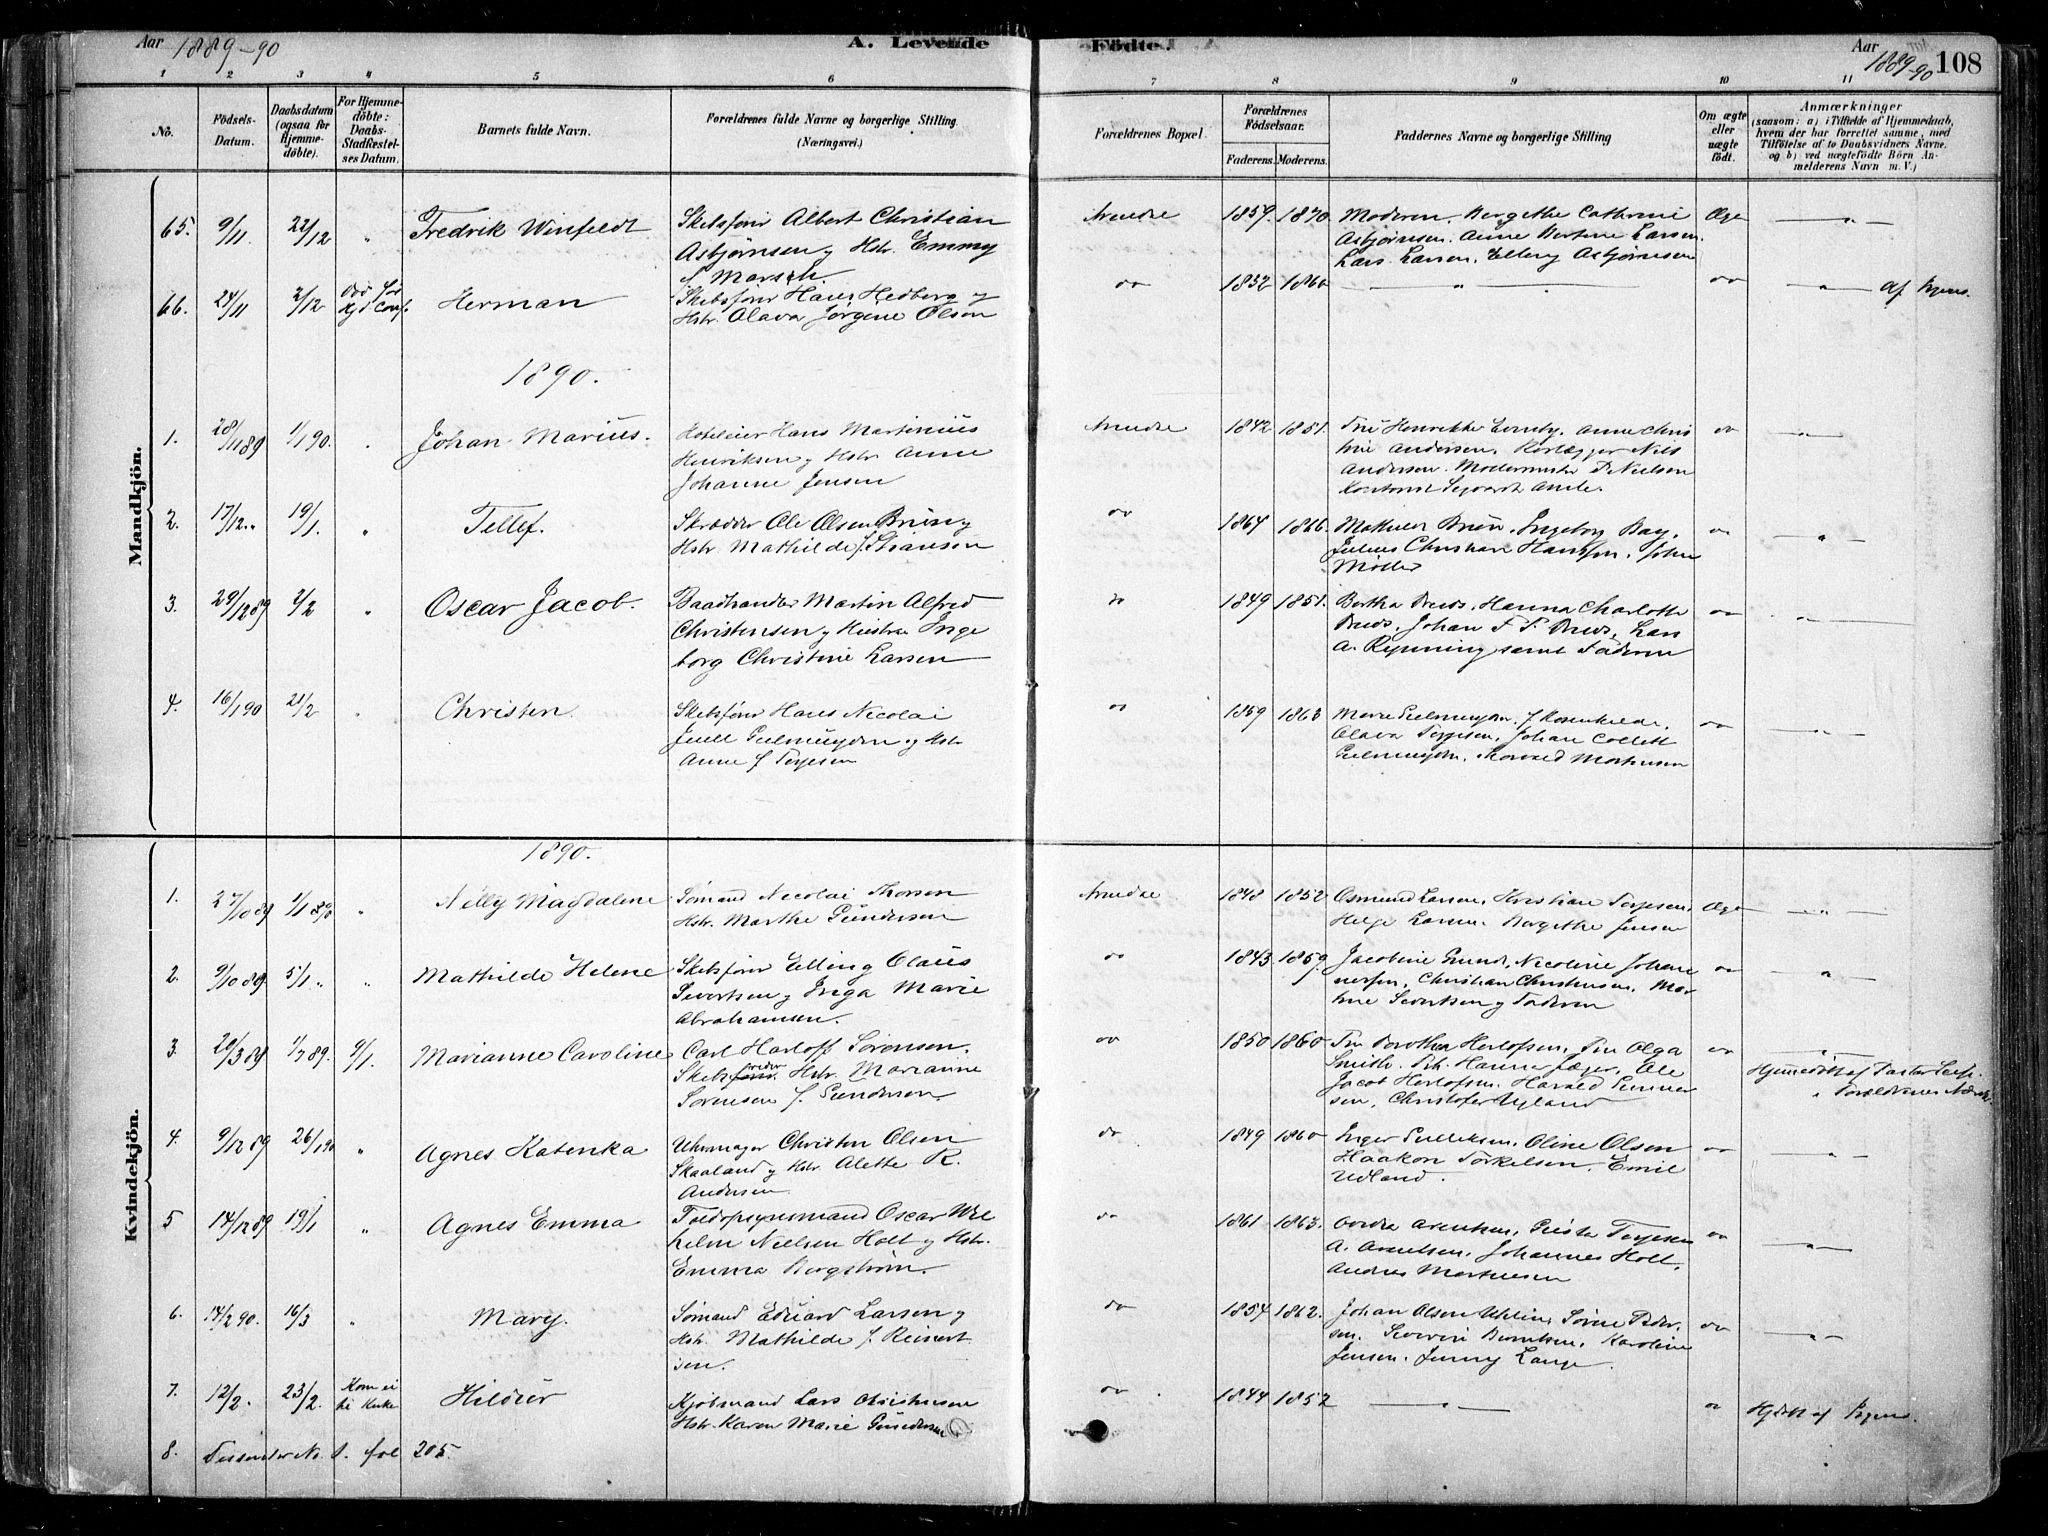 Aar 1889-90
A. Levende
Födte.
Aar 1889-90
108
1 2 3 4 5 6 7 8 9 10 11
No.
Födsels-Datum.
Daabsdatum (ogsaa for Hjemmedöbte).
For Hjemmedöbte: Daabs-Stadfæstelses Datum.
Barnets fulde Navn.
Forældrenes fulde Navne og borgerlige Stilling (Næringsvei.)
Forældrenes Bopæl.
Forældrenes Födselsaar.
Faderens. Moderens.
Faddernes Navne og borgerlige Stilling
Om ægte eller uægte födt.
Anmærkninger
(saasom: a) i Tilfælde af Hjemmedaab,
hvem der har forrettet samme, med
Tilföielse af to Daabsvidners Navne,
og b) ved uægtefödte Börn An-
melderens Navn m.V.)
Mandkjön.
65. 9/11. 22/12 " Fredrik Winfeldt. Skibsförer Albert Christian
Asbjørnsen og Hstr. Emmy
Arendal 1859. 1870. Moderen, Bergethe Cathrine
Asbjørnsen. Anne Bertine Larsen.
Lars Larsen, Elling Asbjørnsen
Ægte "
66. 24/11 2/12 Herman Skibsförer Hans Hedberg og
Hstr. Olava Jörgine Olsen
do 1832 1860 " do " af
1890.
1. 28/11 89 1/1 90. " Johan Marius. Hoteleier Hans Martinius
Henriksen og Hstr. Anne
Johanne Jensen
Arendal 1842 1851. Fru Henrikke
Anne Christine Andersen. Rörlægger Nils
Andersen. F. Nielsen
do "
2. 17/12. " 19/1. " Tellef. Skrædder Ole Olsen Bruun og
Hstr. Mathilde J.
do 1864 1866. Mathilde Bruun. Ingeborg Bay.
Julius Christian Hansen. John
Möller
do "
3. 29/12 89 2/2 " Oscar Jacob. Baadhandler Martin Alfred
Christensen og Hustru Inge
borg Christine Larsen
do 1849 1851. Bertha Hanna Charlotte
Johan F. Lars
A. Rypning samt Faderen
do "
4. 16/1 90 21/2 " Christen. Skibsförer Hans Nicolai
Juell Gielmuyden og Hstr.
Anne J. Terjesen
do 1859 1863 Marie Gielmuyden. J. Rosenkilde.
Olava Terjesen. Johan Collett
Gielmuyden. Thorvald Mortensen
do
Kvindekjön.
1890.
1. 27/10 89 1/1 90 " Nelly Magdalene Sömand Nicolai Thorsen
Hstr. Marthe Gundersen
Arendal 1848 1852 Osmund Larsen, Kristiane Terjesen.
Helge Larsen. Bergithe Jensen
Ægte "
2. 9/10 89. 5/1 " " Mathilde Helene Skibsförer Elling Olaus
Sivertsen og Inga Marie
Abrahamsen.
do 1843 1859. Jacobine Nicoline Johan
nessen, Christian Christensen, Mar
thine Sivertsen og Faderen
do "
3. 20/3 89 1/7 89. 9/1. Marianne Caroline Carl Herloff Sörensen.
Skibsreder. Hstr. Marianne
Sörensen f. Gundersen.
do 1850 1860 Fru Dorothea Herlofsen, Fru Olga
Smith. Frk. Hanna Jæger, Ole
Jacob Herlofsen. Harald Gunner
sen, Christofer Ugland
do " Hjemmedöbt af Pastor
Forældrenes
4. 9/12 89 26/1 90 " Agnes Katinka Uhrmager Christen Olsen
Skaaland og Hstr. Alette R.
Andersen
do 1849 1860 Inger Oline Olsen
Haakon Torkelsen. Emil
Udland.
do "
5 14/12 89 19/1 " Agnes Emma Toldopsynsmand Oscar Wil
helm Nielsen Holt og Hstr.
Emma Bergström.
do 1861 1863. Terjesen
A. Arentsen. Johannes Holt.
Andreas Mortensen
do "
6. 14/2 90. 16/3 " Mary. Sömand Eduard Larsen og
Hstr. Mathilde f. Reinert
sen.
do 1854 1862. Johan Olsen Uhlin, Sörine Peder
sen. Severin Berntsen, Karoline
Jensen. Jenny Lange.
do "
7. 12/2. 23/2. Kom ei til Kirke Hildur Kjöbmand Lars Christensen
Hstr. Karen Marie Gundersen
do. 1844 1852 " do Hjdöbt af
8. Dissenter No. 1. fol 205.